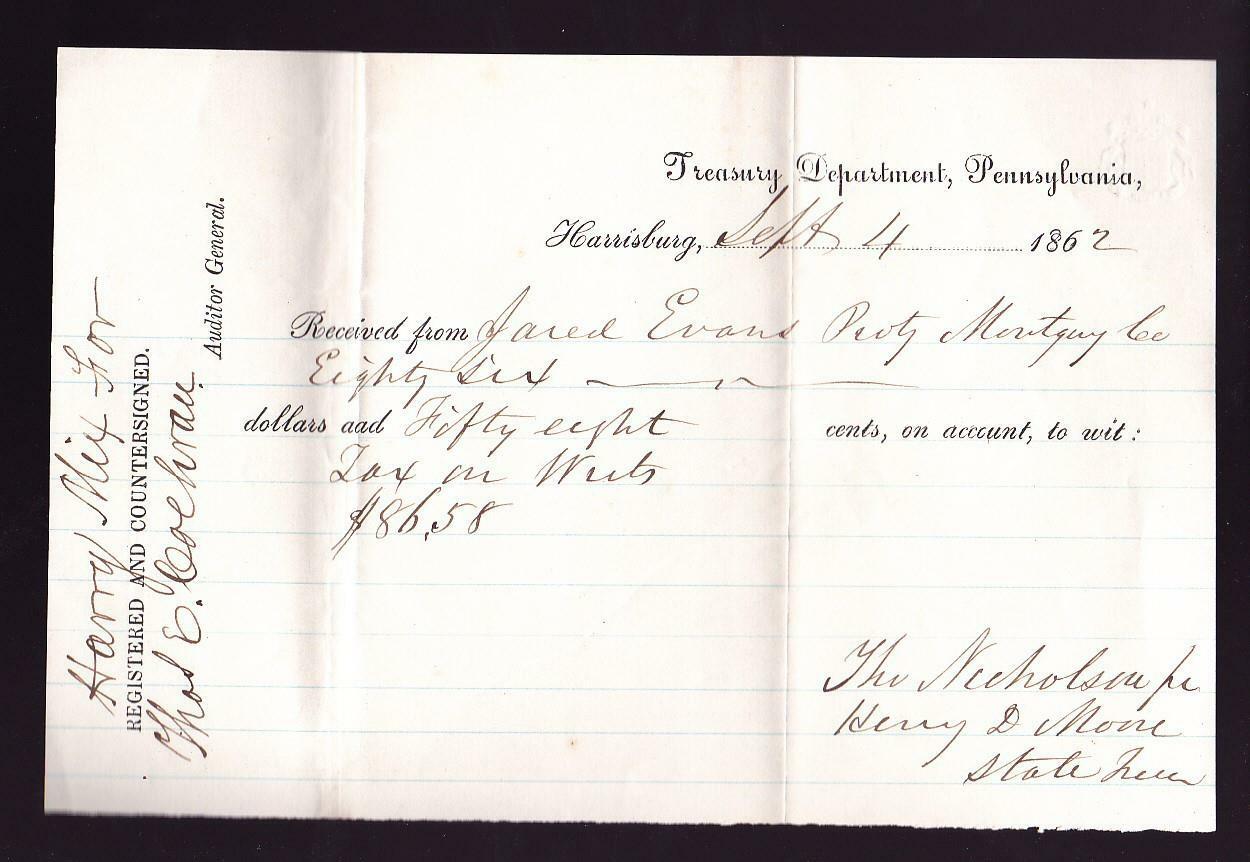 Treasury Department, Pennsylvania,
Harrisburg, Sept 4 1862
Received from Jared Evans Proty Montgmy Co
Eighty Six
dollars aad Fifty eight cents, on account, to wit:
Tax on Writs
$86.58
Tho Nicholson pr
Henry D Moore
State Treas
Harry Mix For
REGISTERED AND COUNTERSIGNED.
Thos E. Cochran
Auditor General.